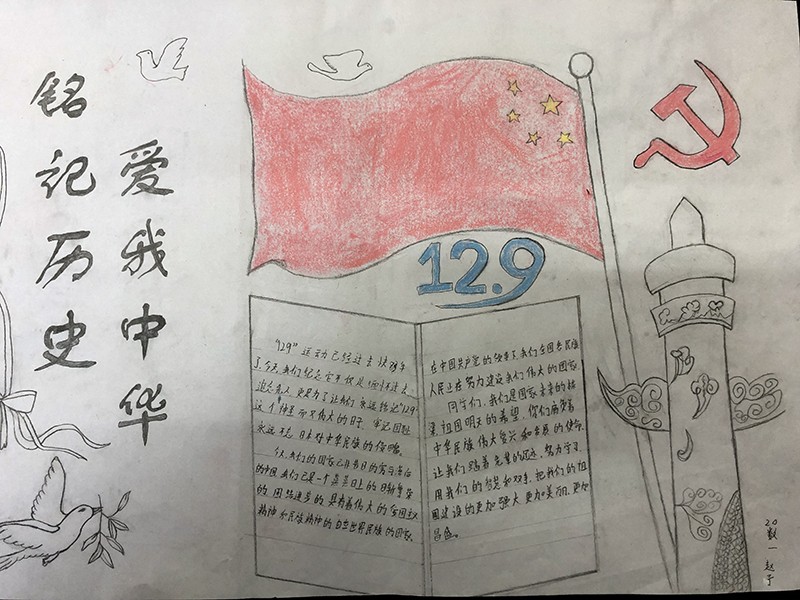 铭记历史
爱我中华
12.9
"129"运动已经过去快
了,今天我们纪念它不仅是缅怀过去
追念亲人更是为了让我们永远铭记"129"
这个神圣而又伟大的日子,牢记国耻
永远不忘日本对中华民族的侵略。
今我们的国家已非昔日的贫穷落后
的中国我们已是一个蒸蒸日上的日新月异
的国的具有着伟大的爱国主义
精神和民族精神的自立世界民族的国家。
在中国共产党的领导下我们全国各民族
人民正在努力建设我们伟大的国家
同学们,我们是国家未来的栋
梁,祖国明天的希望,你们肩负着
中华民族伟大复兴和发展的使命
让我们踏着先辈的足迹,努力学习
用我们的智慧和双手,把我们的祖
国建设的更加强大更加美丽,更加
昌盛。
20
数
一
赵